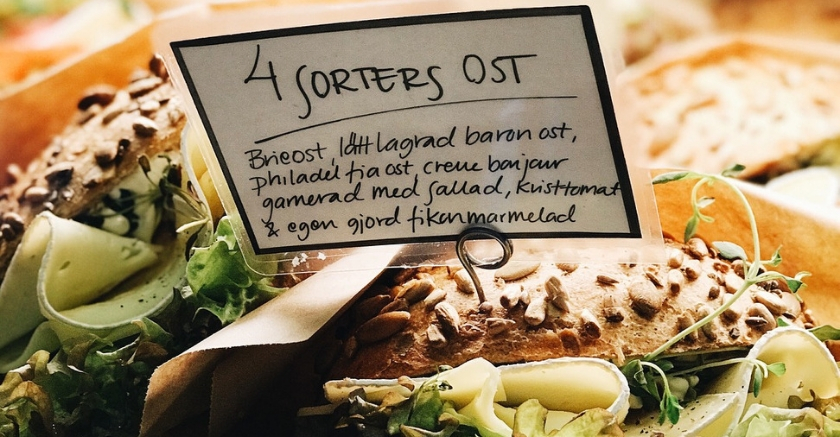 4 SORTERS OST
Brieost, lätt lagrad baron ost,
Philadelfia ost, creme bonjour
garnerad med sallad, kvisttomat
& egen gjord fikonmarmelad